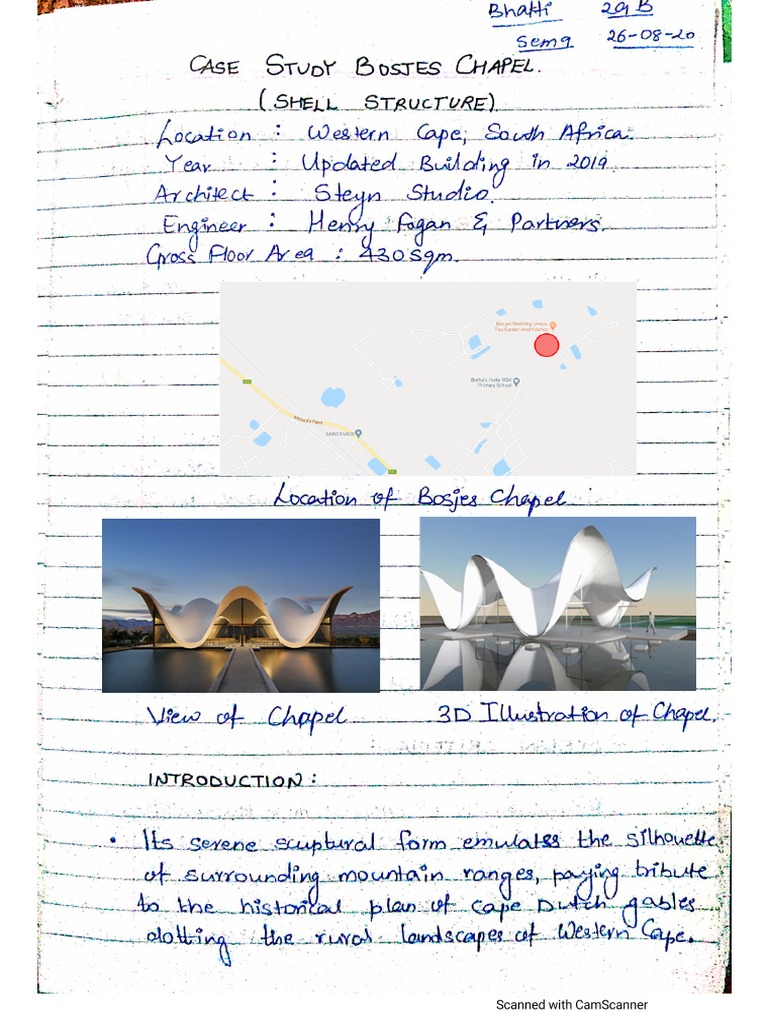 Bhatti 2GB
Sem 9 26-08-20
CASE STUDY BOSJES CHAPEL.
(SHELL STRUCTURE)
Location : Western Cape, South Africa.
Year : Updated Building in 2019
Architect : Steyn Studio.
Engineer : Henry Fagan & Partners.
Gross Floor Area : 430 Sqm.
Bosjes Wedding Venue,
Tea Garden And Kitchen
Botha's Halte NGK
Primary School
Location of Bosjes Chapel
View of Chapel
3D Illustration of Chapel.
INTRODUCTION :
• Its serene scuptural form emulates the silhouette
of surrounding mountain ranges, paying tribute
to the historical plan of Cape Dutch gables
dotting the rural landscapes of Western Cape.
Scanned with CamScanner